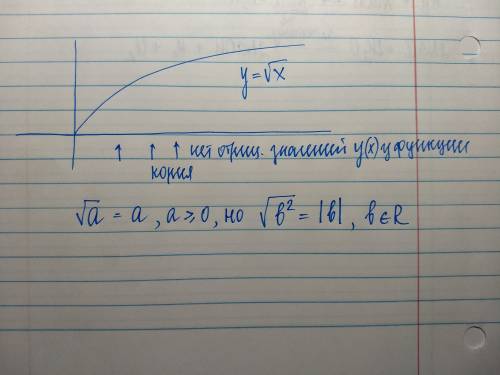 y=√x
↑ ↑ ↑ нет отриц. значений y(x) у функции
корня
√a = a, a ≥ 0, но √b² = |b|, b ∈ R